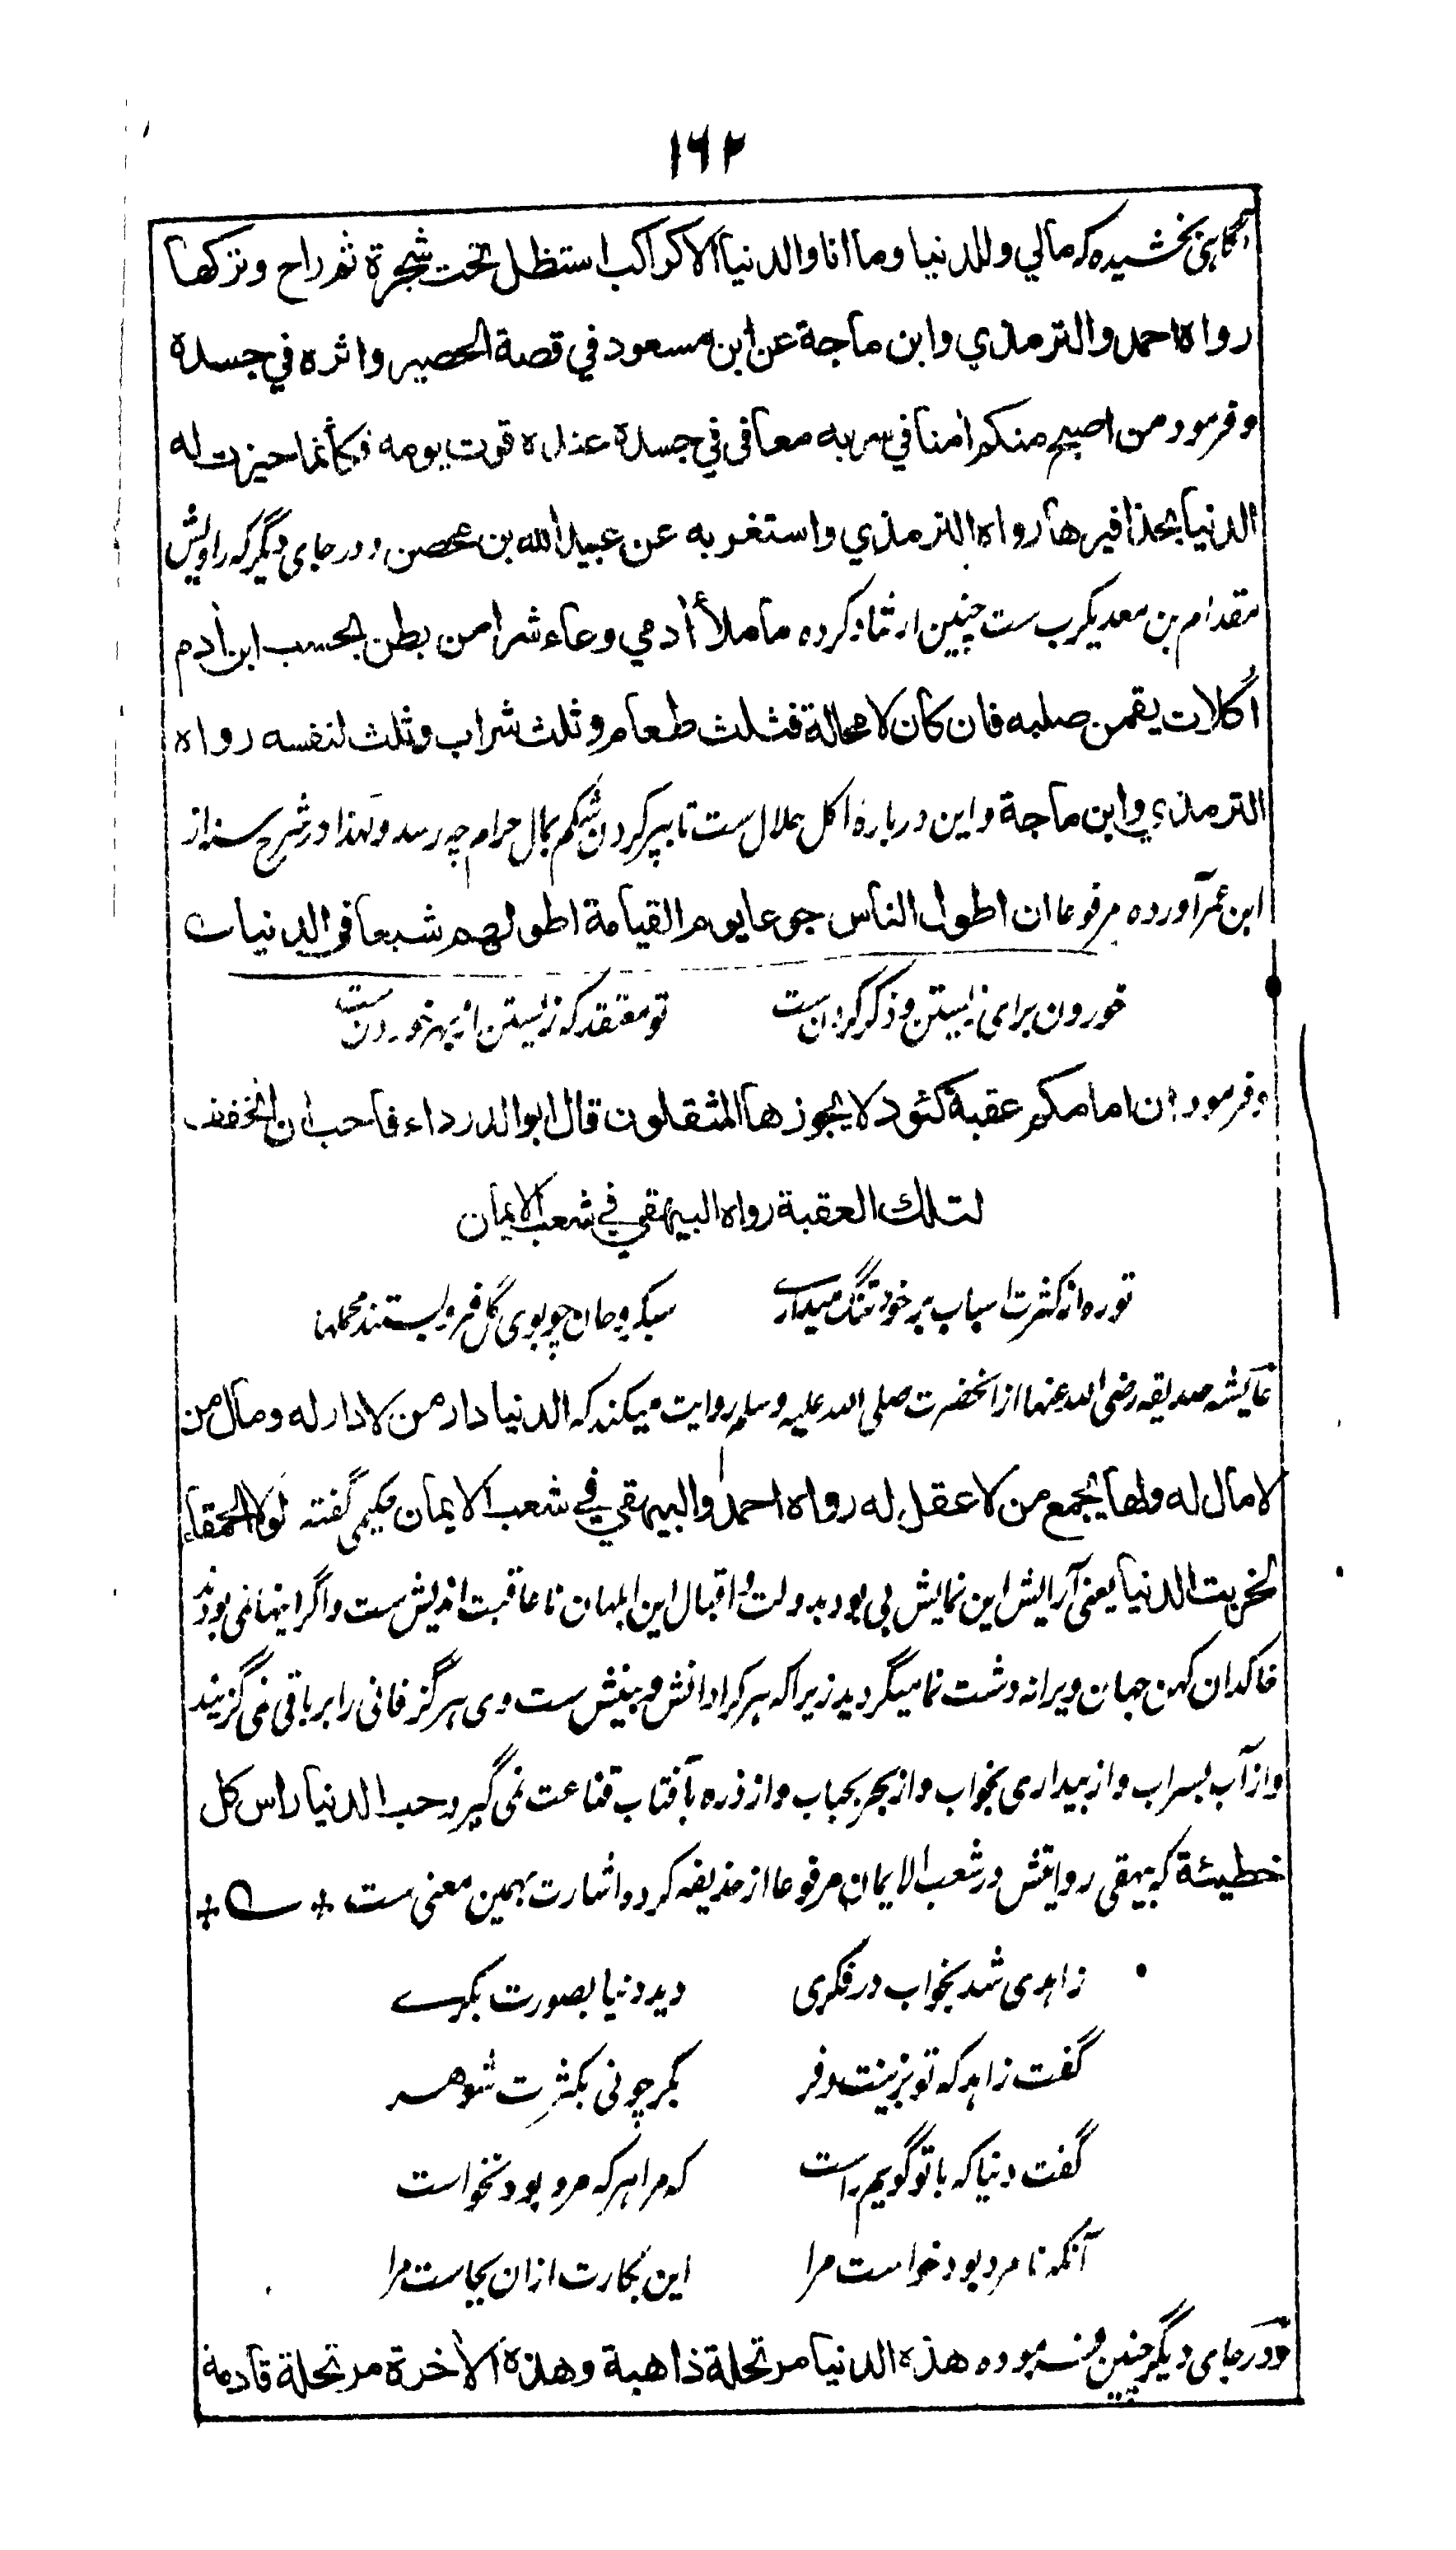 ۱۶۲
آگاهی بخشیده که مالي وللدنيا وما انا والدنيا الا كراكب استظل تحت شجرة ثم راح وتركها
رواه احمد والترمذي وابن ماجة عن ابن مسعود في قصة الحصير واثره في جسده
وفرمود من اصبح منكم امنا في سربه معافى في جسده عنده قوت يومه فكأنما حيزت له
الدنيا بحذافيرها رواه الترمذي واستغربه عن عبيد الله بن محصن ودر جای دیگر که راویش
مقدام بن معدیکرب ست چنین ارشاد کرده ما ملأ أدمي وعاء شرا من بطن بحسب ابن أدم
اكلات يقمن صلبه فان كان لا محالة فثلث طعام وثلث شراب وثلث لنفسه رواه
الترمذي وابن ماجة واین درباره اکل حلال ست تا بپر کردن شکم بمال حرام چه رسد ولهذا در شرح سنه از
ابن عمر آورده مرفوعا ان اطول الناس جوعا يوم القيامة اطولهم شبعا في الدنيا
خوردن برای زیستن و ذکر کردن ست تو معتقد که زیستن از بهر خوردن ست
وفرمود ان امامكم عقبة كئود لا يجوزها المثقلون قال ابوالدرداء فاحب ان اتخفف
لتلك العقبة رواه البيهقي في شعب الايمان
تو ره از کثرت اسباب بر خود تنگ میداری سبک روحان چو بوی گل فرو بستند محملها
عایشه صدیقه رضی الله عنها از انحضرت صلی الله علیه وسلم روایت میکند که الدنيا دار من لا دار له ومال من
لا مال له ولها يجمع من لا عقل له رواه احمد والبيهقي في شعب الايمان حکیمی گفته لولا الحمقاء
لخربت الدنيا یعنی آرایش این نمایش بی بود بدولت و اقبال این ابلهان نا عاقبت اندیش ست و اگر اینها نمی بودند
خاکدان کهن جهان ویرانه دشت نما میگردید زیرا که هر کرا دانش و بینش ست وی هرگز فانی را بر باقی نمی گزیند
و از آب بسراب و از بیداری بخواب و از بحر بحباب و از ذره بآفتاب قناعت نمی گیرد حب الدنيا راس كل
خطيئة که بیهقی روایتش در شعب الایمان مرفوعا از حذیفه کرده اشارت بهمین معنی ست
زاهدی شد بخواب در فکری دید دنیا بصورت بکری
گفت زاهد که تو بزینت و فر بکر چونی بکثرت شوهر
گفت دنیا که با تو گویم راست که مرا هر که مرد بود نخواست
آنکه نامرد بود خواست مرا این بکارت ازان بجاست مرا
و در جای دیگر چنین فرموده هذه الدنيا مرتحلة ذاهبة وهذه الأخرة مرتحلة قادمة